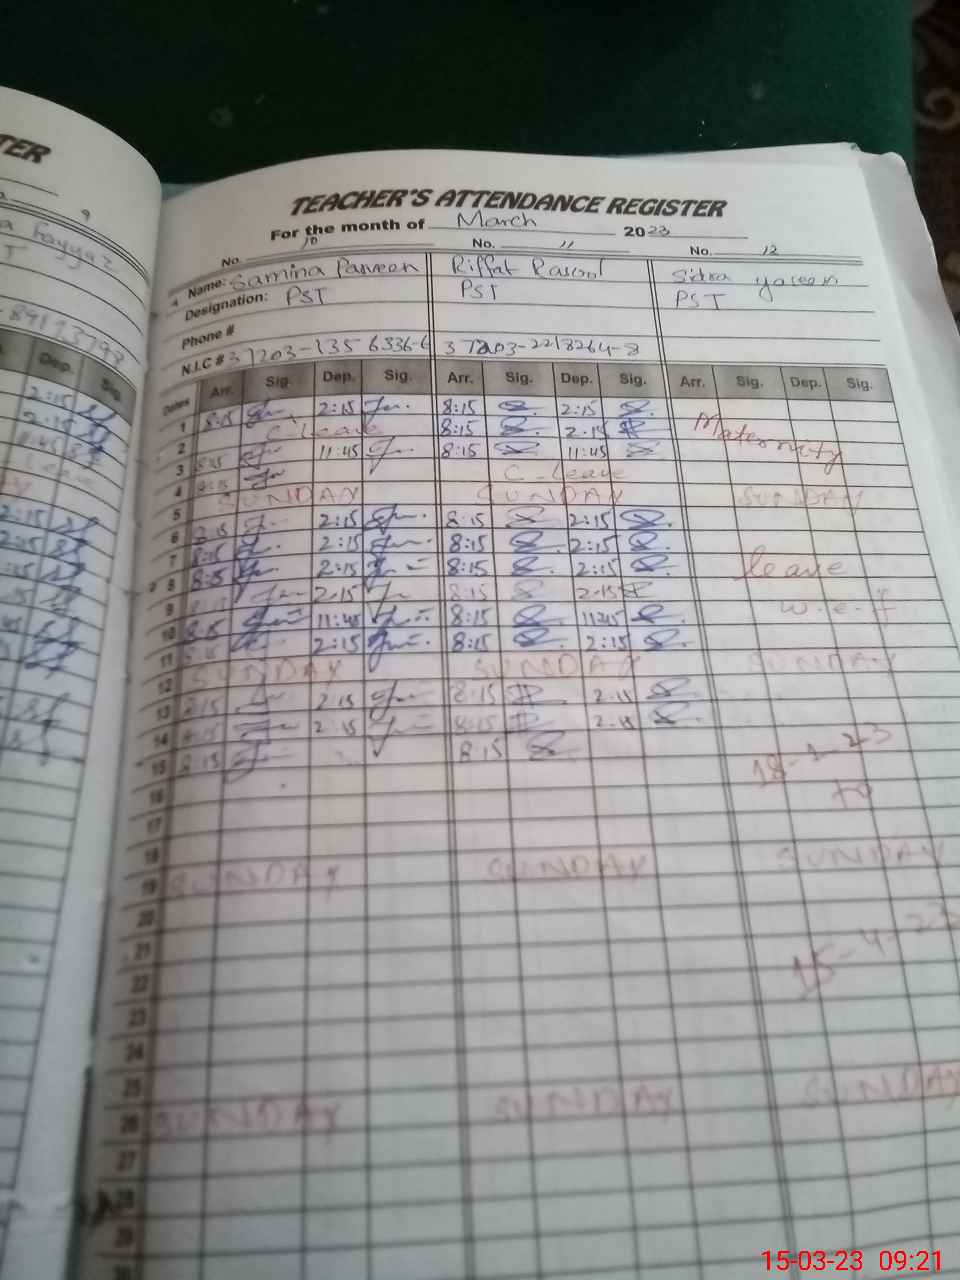 TER
9
TEACHER'S ATTENDANCE REGISTER
For the month of March 2023
No. 10 No. 11 No. 12
Name: Samina Parveen Riffat Rasool Sidra yaseen
Designation: PST PST PST
Phone #
N.I.C # 37203-1356336-6 37203-2218264-8
Dates Arr. Sig. Dep. Sig. Arr. Sig. Dep. Sig. Arr. Sig. Dep. Sig.
1 8:15 2:15 8:15 2:15
2 C-Leave 8:15 2:15 Maternity
3 8:15 11:45 8:15 11:45
4 8:15 C-Leave
5 SUNDAY SUNDAY SUNDAY
6 8:15 2:15 8:15 2:15
7 8:15 2:15 8:15 2:15
8 8:15 2:15 8:15 2:15 leave
9 8:15 2:15 8:15 2:15 w.e.f
10 8:15 11:45 8:15 11:45
11 8:15 2:15 8:15 2:15
12 SUNDAY SUNDAY SUNDAY
13 8:15 2:15 8:15 2:15
14 8:15 2:15 8:15 2:15
15 8:15 8:15 18-1-23
16 to
17
18
19 SUNDAY SUNDAY SUNDAY
20
21
22 15-4-23
23
24
25
26 SUNDAY SUNDAY SUNDAY
27
28
29
15-03-23 09:21